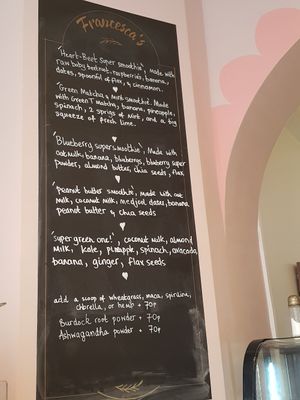 Francesca's
"Heart-Beet super smoothie", Made with
raw baby beetroot, raspberries, banana,
dates, spoonful of flax, & cinnamon.
"Green Matcha & Mint smoothie". Made
with Green T matcha, banana, pineapple,
spinach, 2 sprigs of mint, and a big
squeeze of fresh lime.
"Blueberry supersmoothie", Made with
oatmilk, banana, blueberrys, blueberry super
powder, almond butter, chia seeds, flax
"Peanut butter smoothie", made with oat
milk, coconut milk, medjool dates, banana
peanut butter & chia seeds
"super green one!", coconut milk, almond
Milk, kale, pineapple, spinach, avacado,
banana, ginger, flax seeds
add a scoop of wheatgrass, maca, spirulina,
chlorella, or hemp + 70p
Burdock root powder + 70p
Ashwagandha powder + 70p